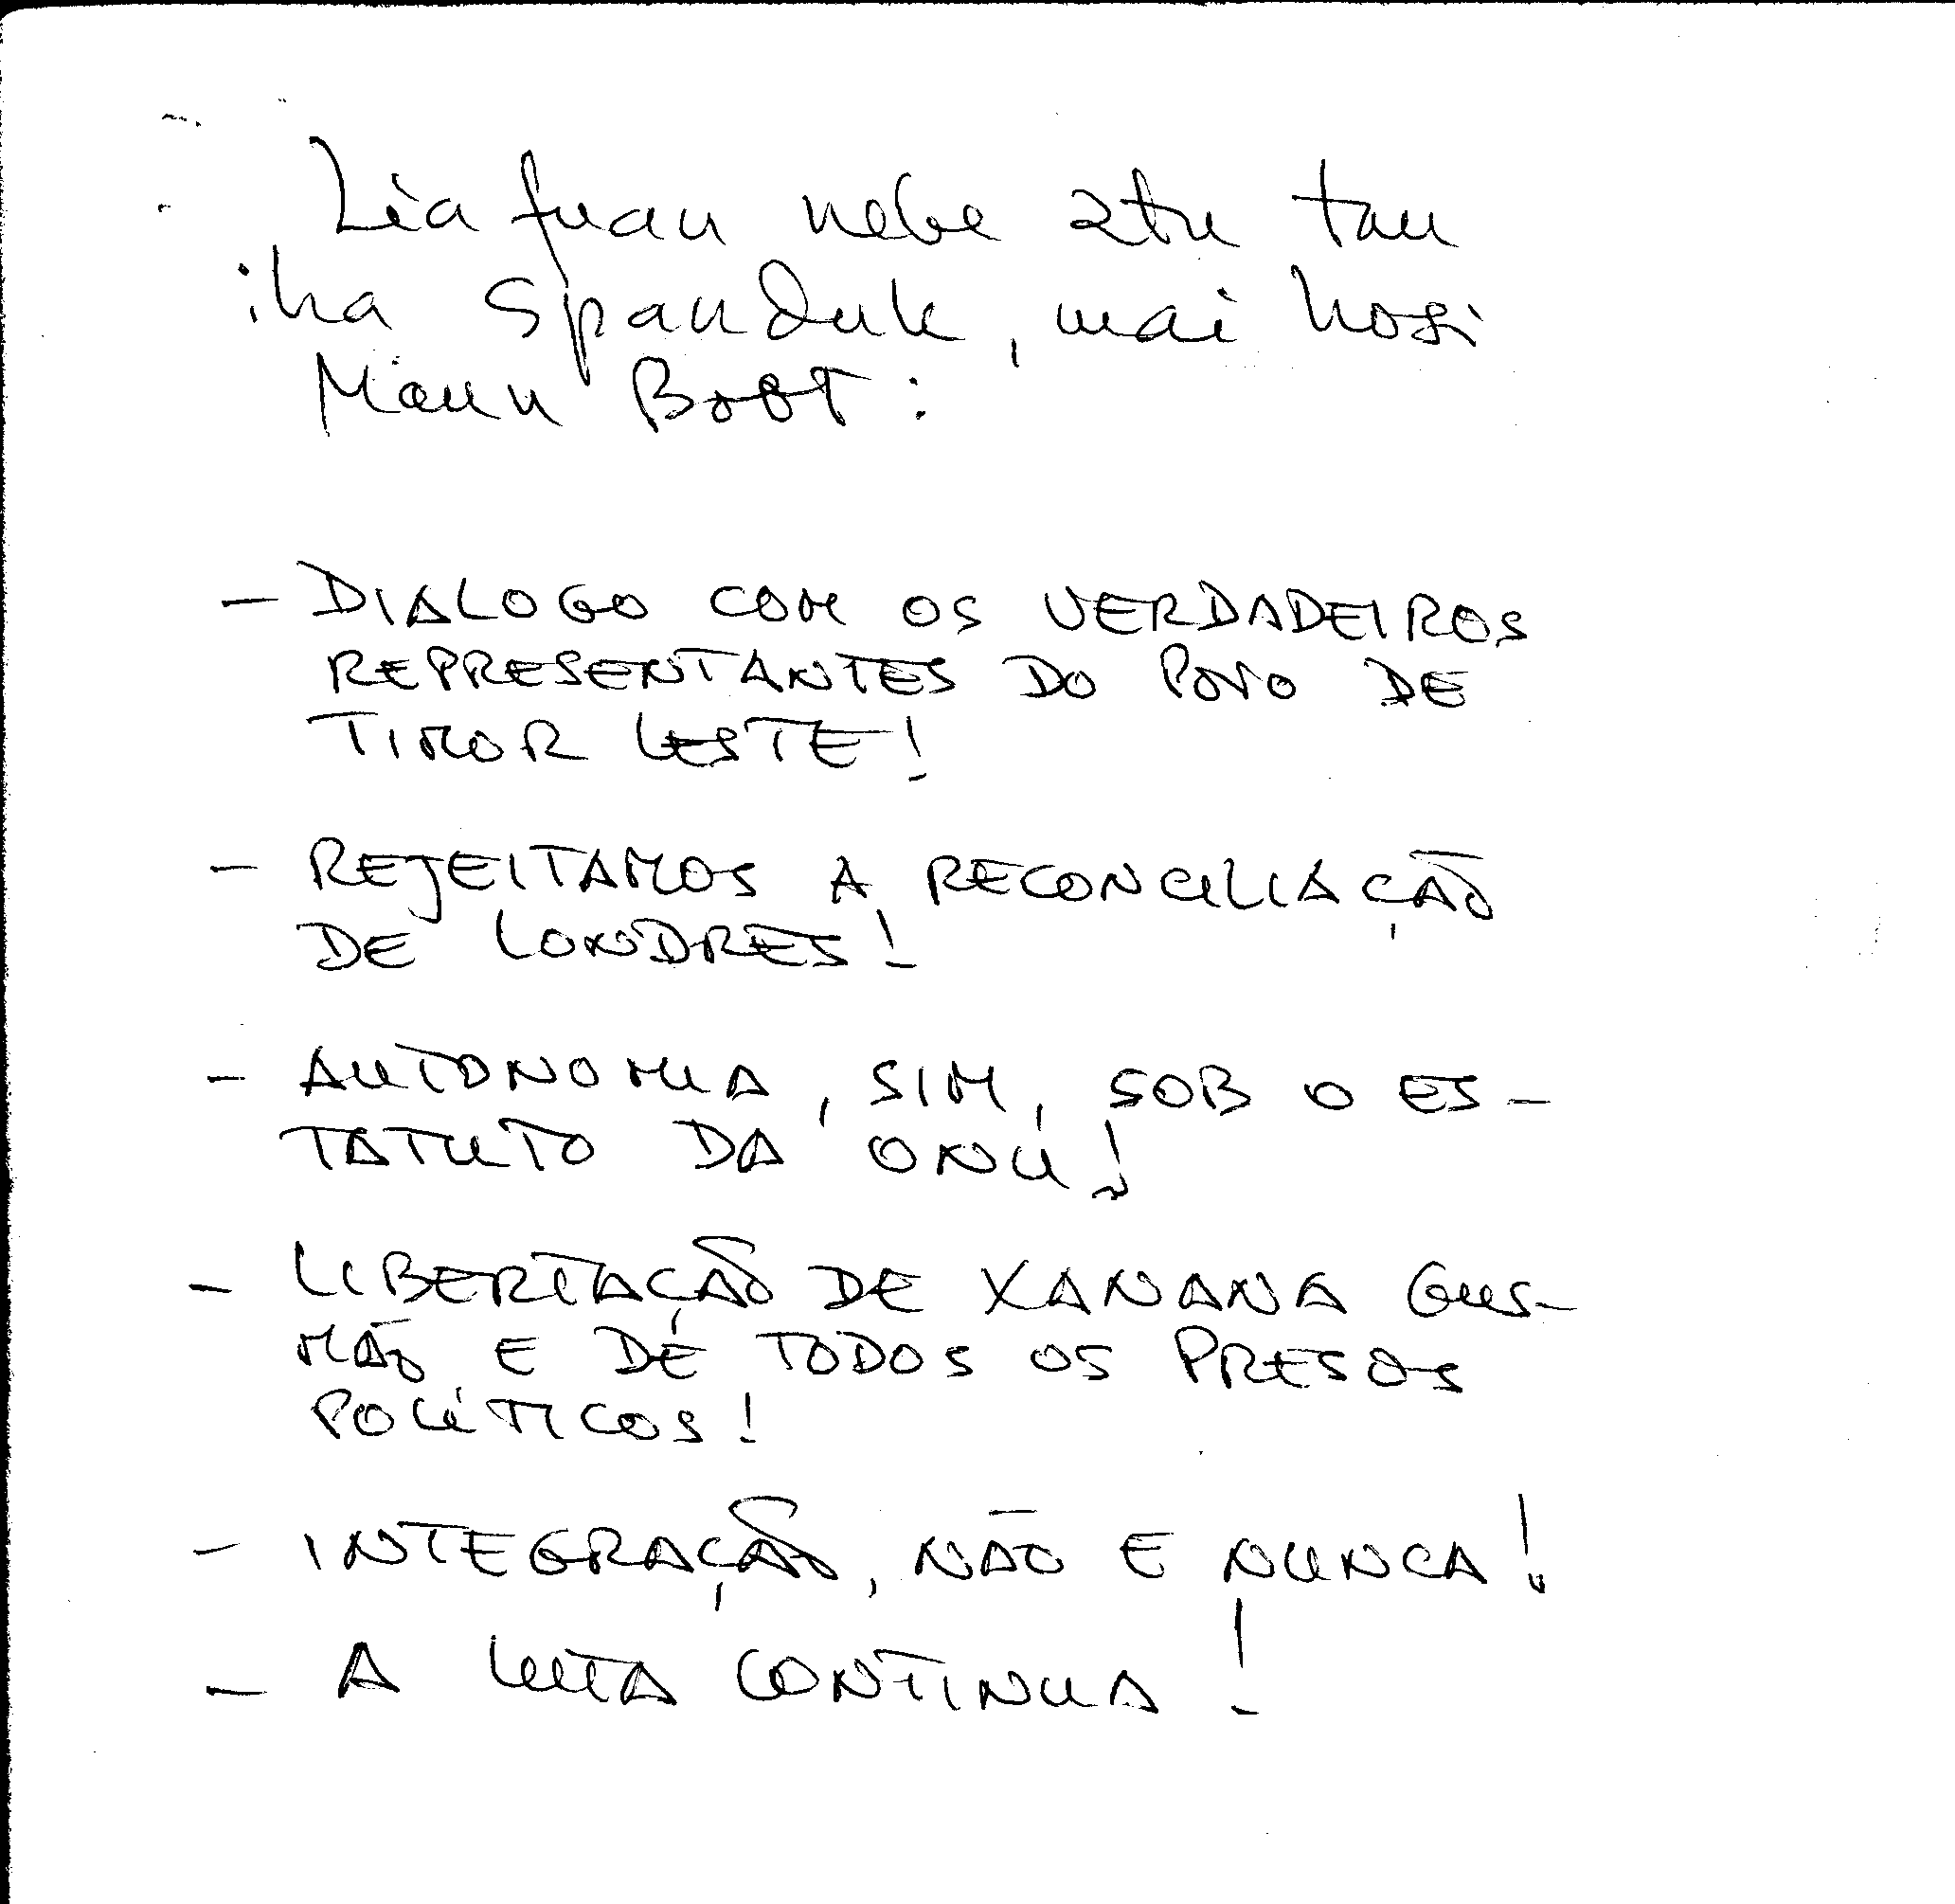 Lia fuan nebe atu tau
iha Spanduk, mai hosi
Maun Boot:
- DIALOGO COM OS VERDADEIROS
REPRESENTANTES DO POVO DE
TIMOR LESTE!
- REJEITAMOS A RECONCILIAÇÃO
DE LONDRES!
- AUTONOMIA, SIM, SOB O ES-
TATUTO DA ONU!
- LIBERTAÇÃO DE XANANA GUS-
MÃO E DE TODOS OS PRESOS
POLÍTICOS!
- INTEGRAÇÃO, NÃO E NUNCA!
- A LUTA CONTINUA!